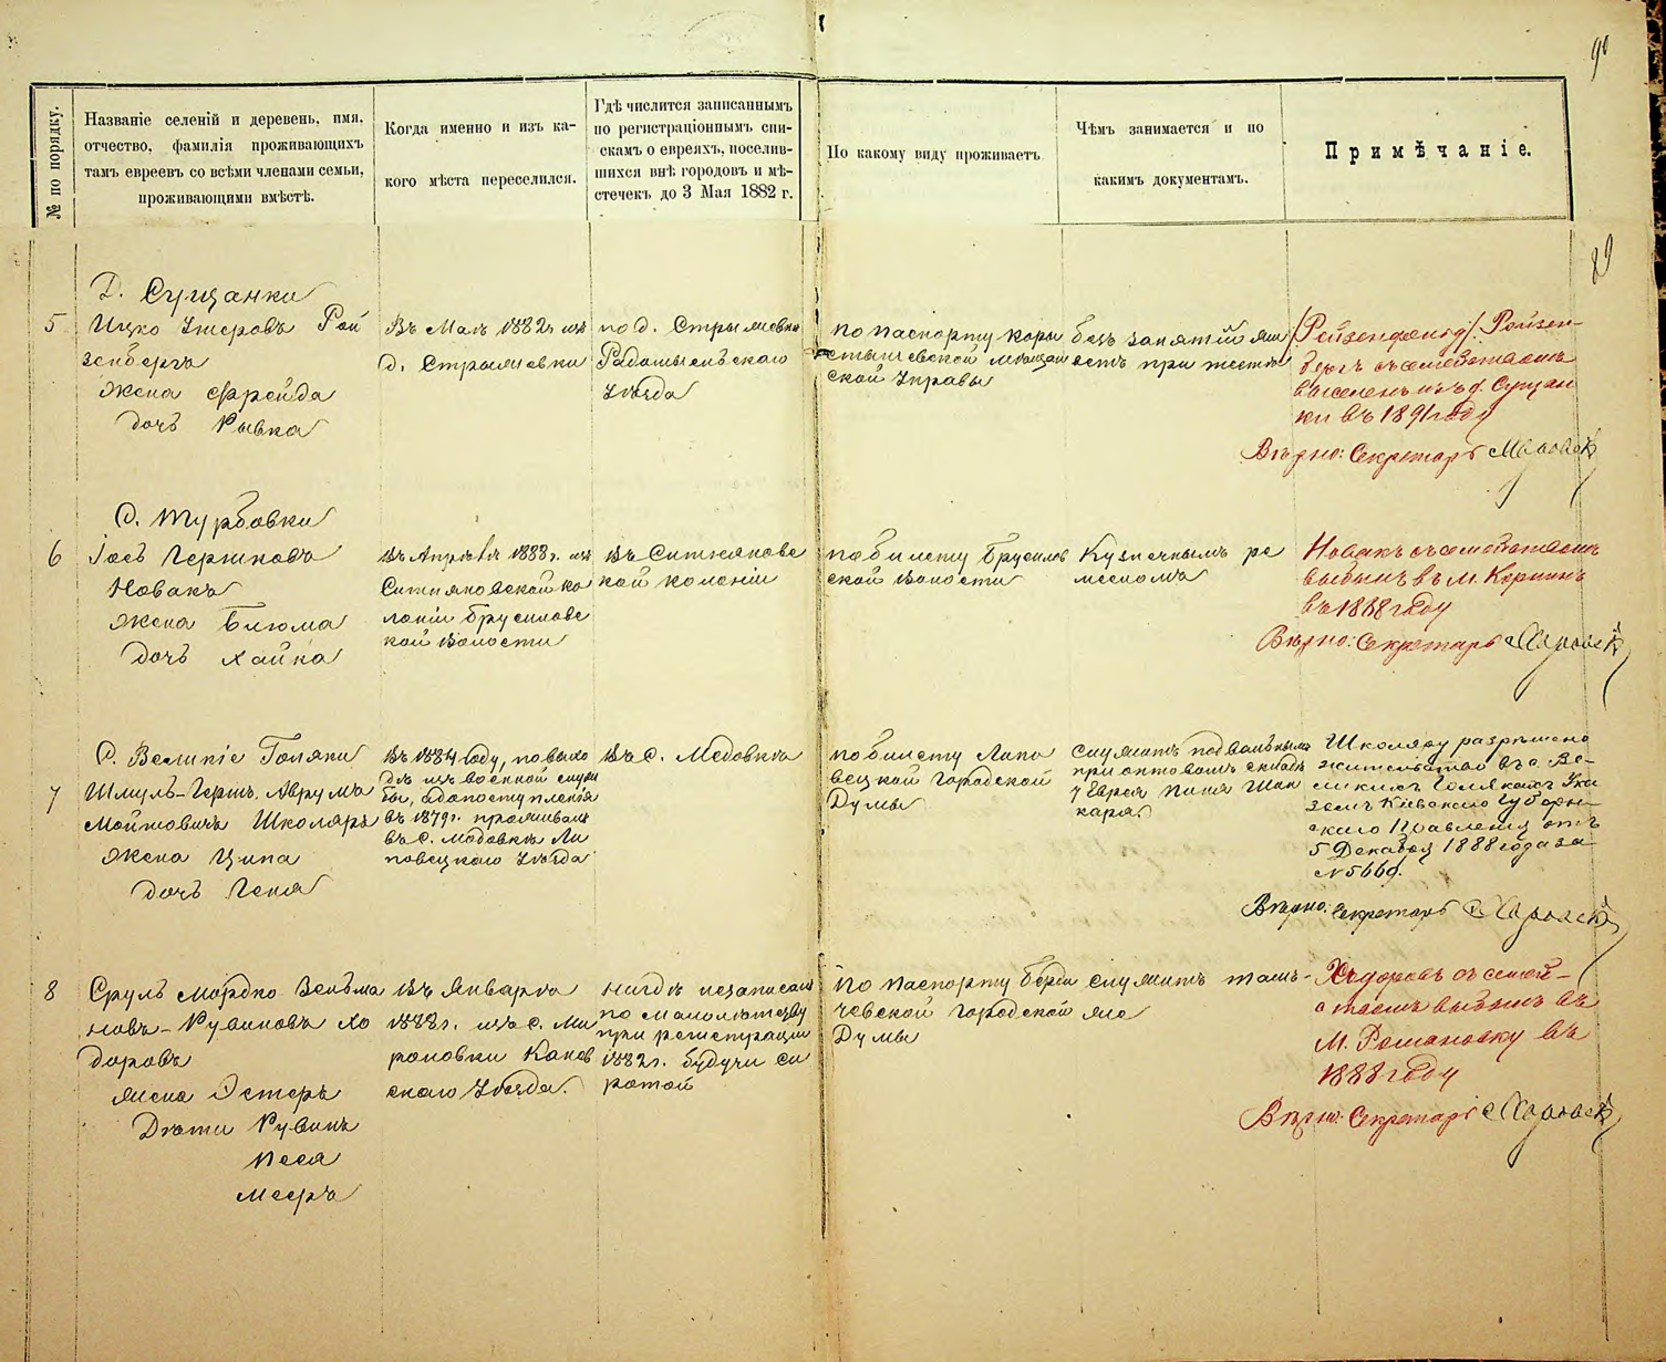 90
№ по порядку.
Названіе селеній и деревень, имя,
отчество, фамилія проживающихъ
тамъ евреевъ со всѣми членами семьи,
проживающими вмѣстѣ.
Когда именно и изъ ка-
кого мѣста переселился.
Гдѣ числится записаннымъ
по регистраціоннымъ спи-
скамъ о евреяхъ, поселив-
шихся внѣ городовъ и мѣ-
стечекъ до 3 Мая 1882 г.
По какому виду проживаетъ
Чѣмъ занимается и по
какимъ документамъ.
Примѣчаніе.
89
Д. Сущанки
5
Ицко Умеровъ Рой
зенбергъ
жена Фрейда
дочь Рывка
Въ Маѣ 1882г. изъ
д. Стрымовки
по д. Стрымовка
Радомысльскаго
Уѣзда
По паспорту Коро
стышевской мѣщан
ской Управы
безъ занятій жи
ветъ при тестѣ
Рейзен-
бергъ съ семействомъ
выселенъ изъ д. Сущан
ки въ 1891 году
Вѣрно: Секретарь
С. Турбовки
6
Іосъ Гершковъ
Новакъ
жена Блюма
дочь Хайка
Въ Апрѣлѣ 1888г. изъ
Ситняковской ко
лоніи Брусиловс
кой волости
Въ Ситняковс
кой колоніи
по билету Брусилов
ской волости
Кузнечнымъ ре
месломъ
Новакъ съ семействомъ
выбылъ въ м. Корнинъ
въ 1888 году
Вѣрно: Секретарь
С. Великіе Голяки
7
Шмуль-Гершъ Аврумъ
Мойшовичъ Школяръ
жена Ципа
дочь Геня
Въ 1884 году, по выхо
дѣ изъ военной служ
бы, а до поступленія
въ 1879г. проживалъ
въ с. Медовкѣ Ли
повецкаго Уѣзда
Въ с. Медовкѣ
по билету Липо
вецкой Городской
Думы
Служитъ подвальнымъ
при оптовомъ складѣ
у Еврея
Школяру разрѣшено
жительство въ с. Ве-
ликихъ Голякахъ Ука
зомъ Кіевскаго Губерн-
скаго Правленія отъ
5 Декабря 1888 года за
Вѣрно: Секретарь
8
Сруль Мордко Зельма
новъ-Рувиновъ Хо
доровъ
жена Эстеръ
Дѣти Рувинъ
Песя
Мееръ
Въ Январѣ
1888г. изъ с. Ми
роновки Канев
скаго Уѣзда.
нигдѣ незаписанъ
по малолѣтству
при регистраціи
1882г. будучи си
ротой
По паспорту Берди
чевской Городской
Думы
служитъ тамъ-
же
Ходоровъ съ семей-
ствомъ выбылъ въ
М. Романовку въ
1888 году
Вѣрно: Секретарь